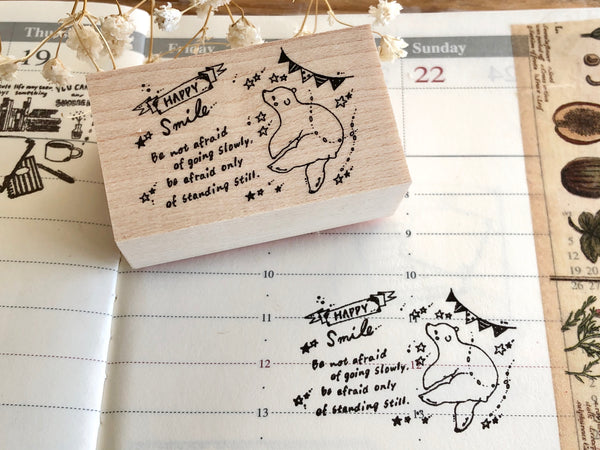 Thu
Friday
Sunday
19
22
24
YOU CAN
HAPPY
Smile
Be not afraid
of going slowly.
be afraid only
of standing still.
8
9
10
10
11
12
12
13
13
HAPPY
Smile
Be not afraid
of going slowly.
be afraid only
of standing still.
5
12
19 20
26 27